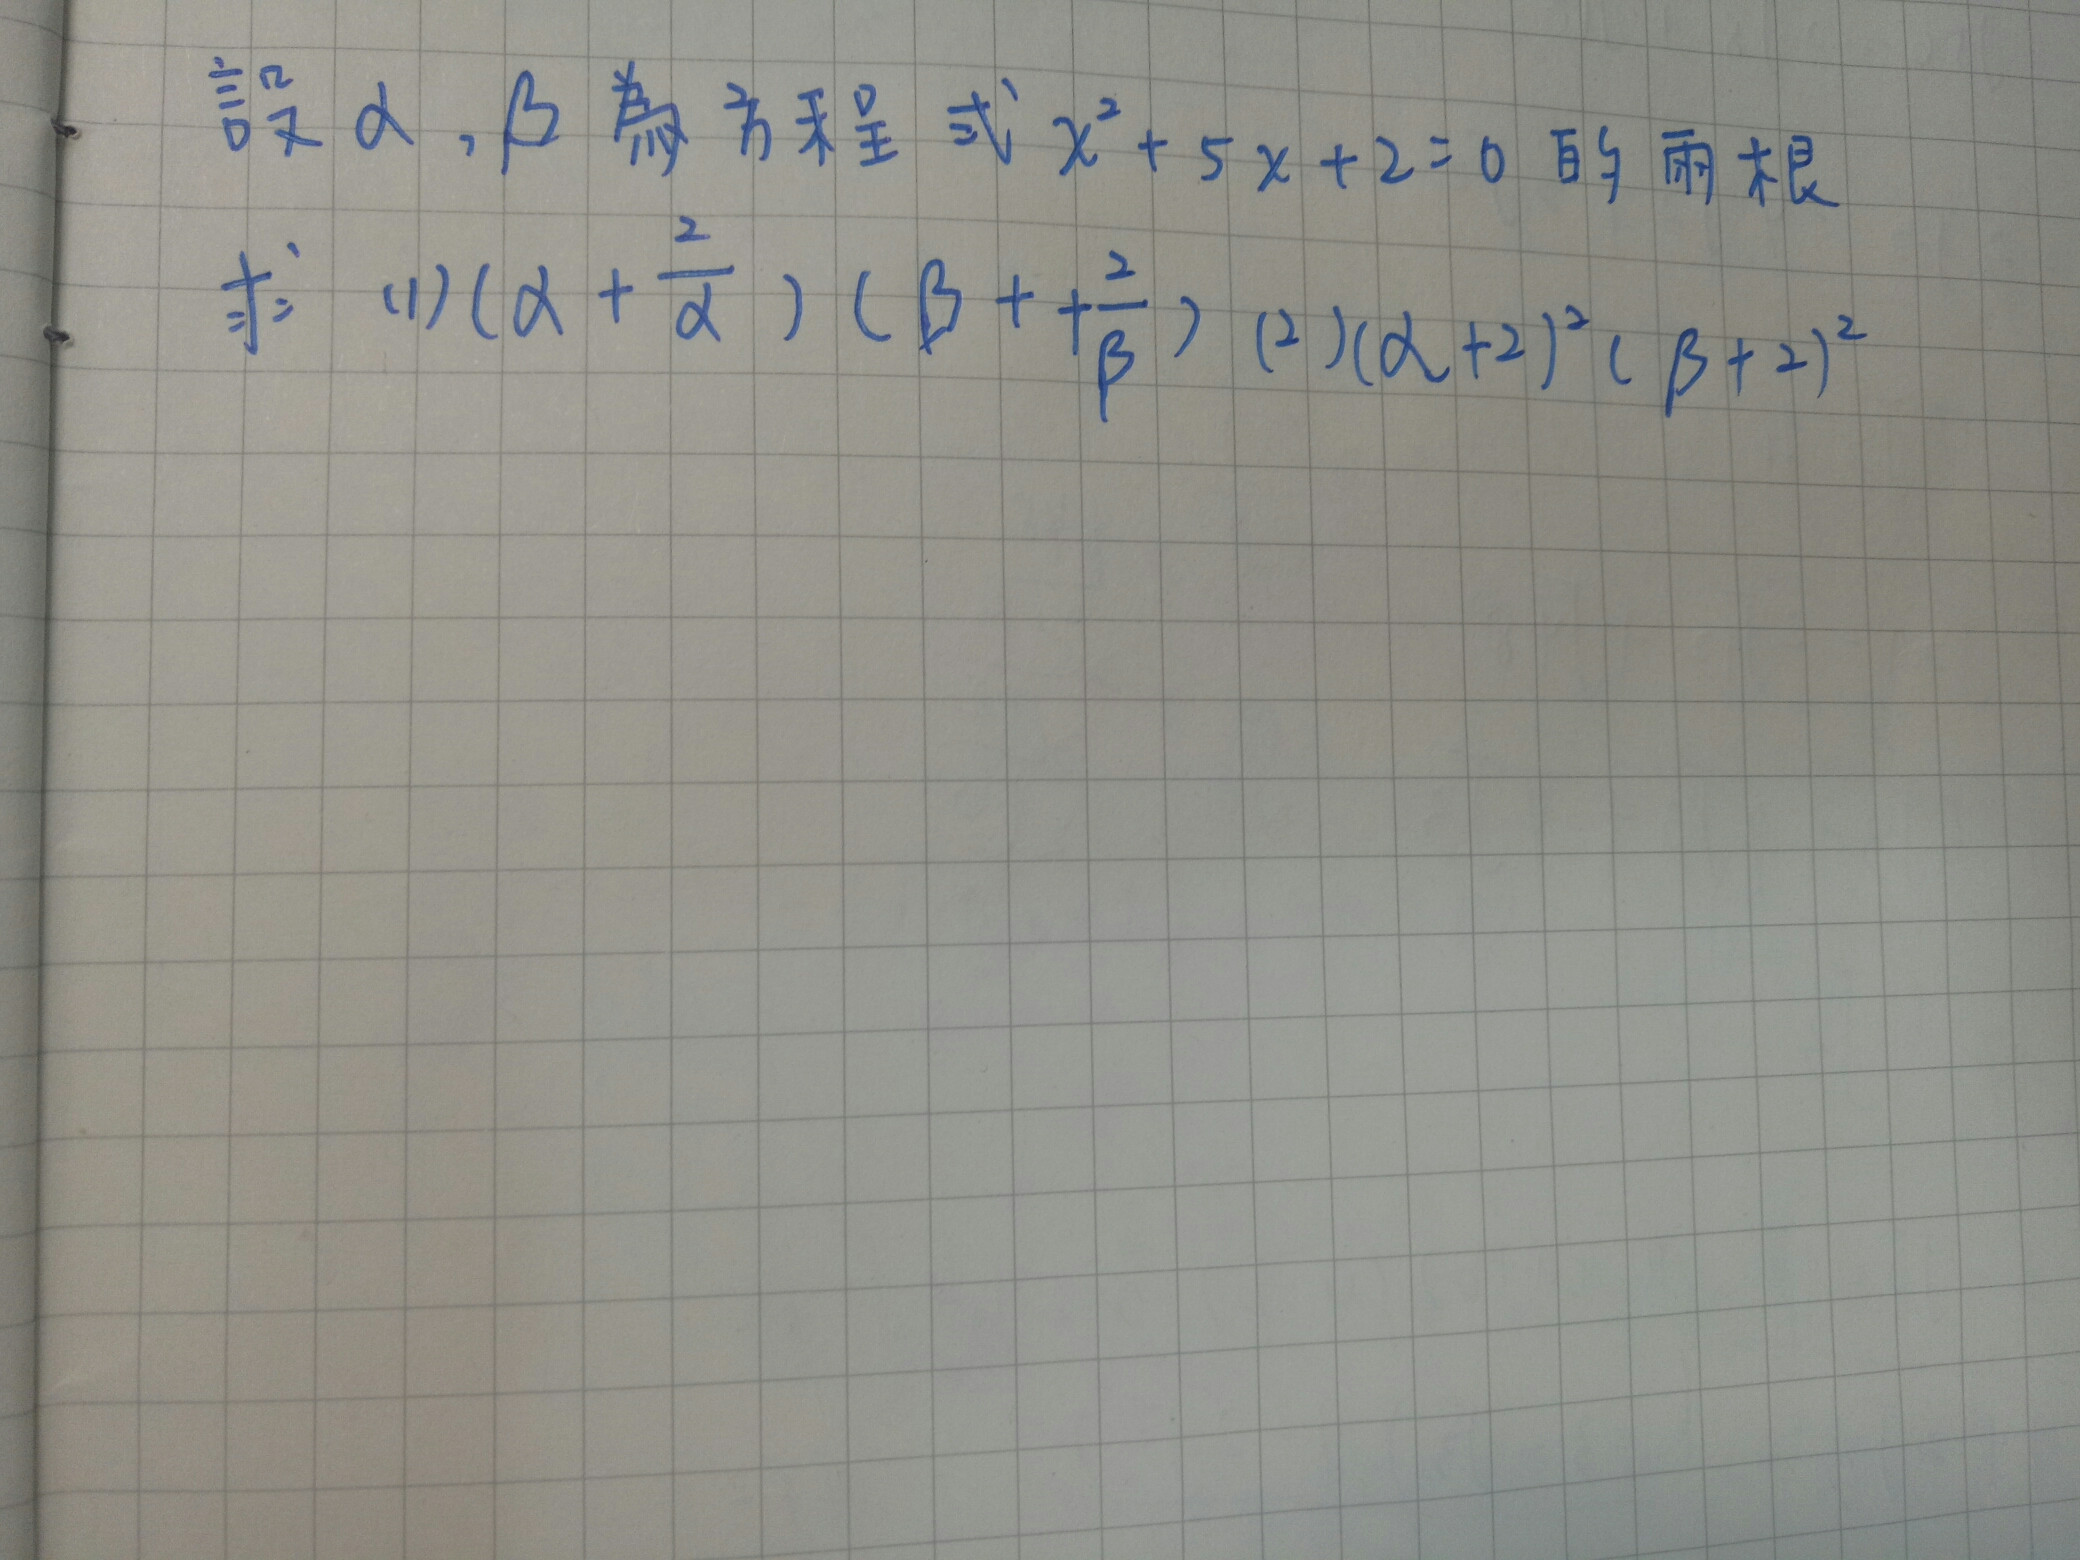 設α,β為方程式x²+5x+2=0的兩根
求 (1)(α+2/α)(β++2/β) (2)(α+2)²(β+2)²